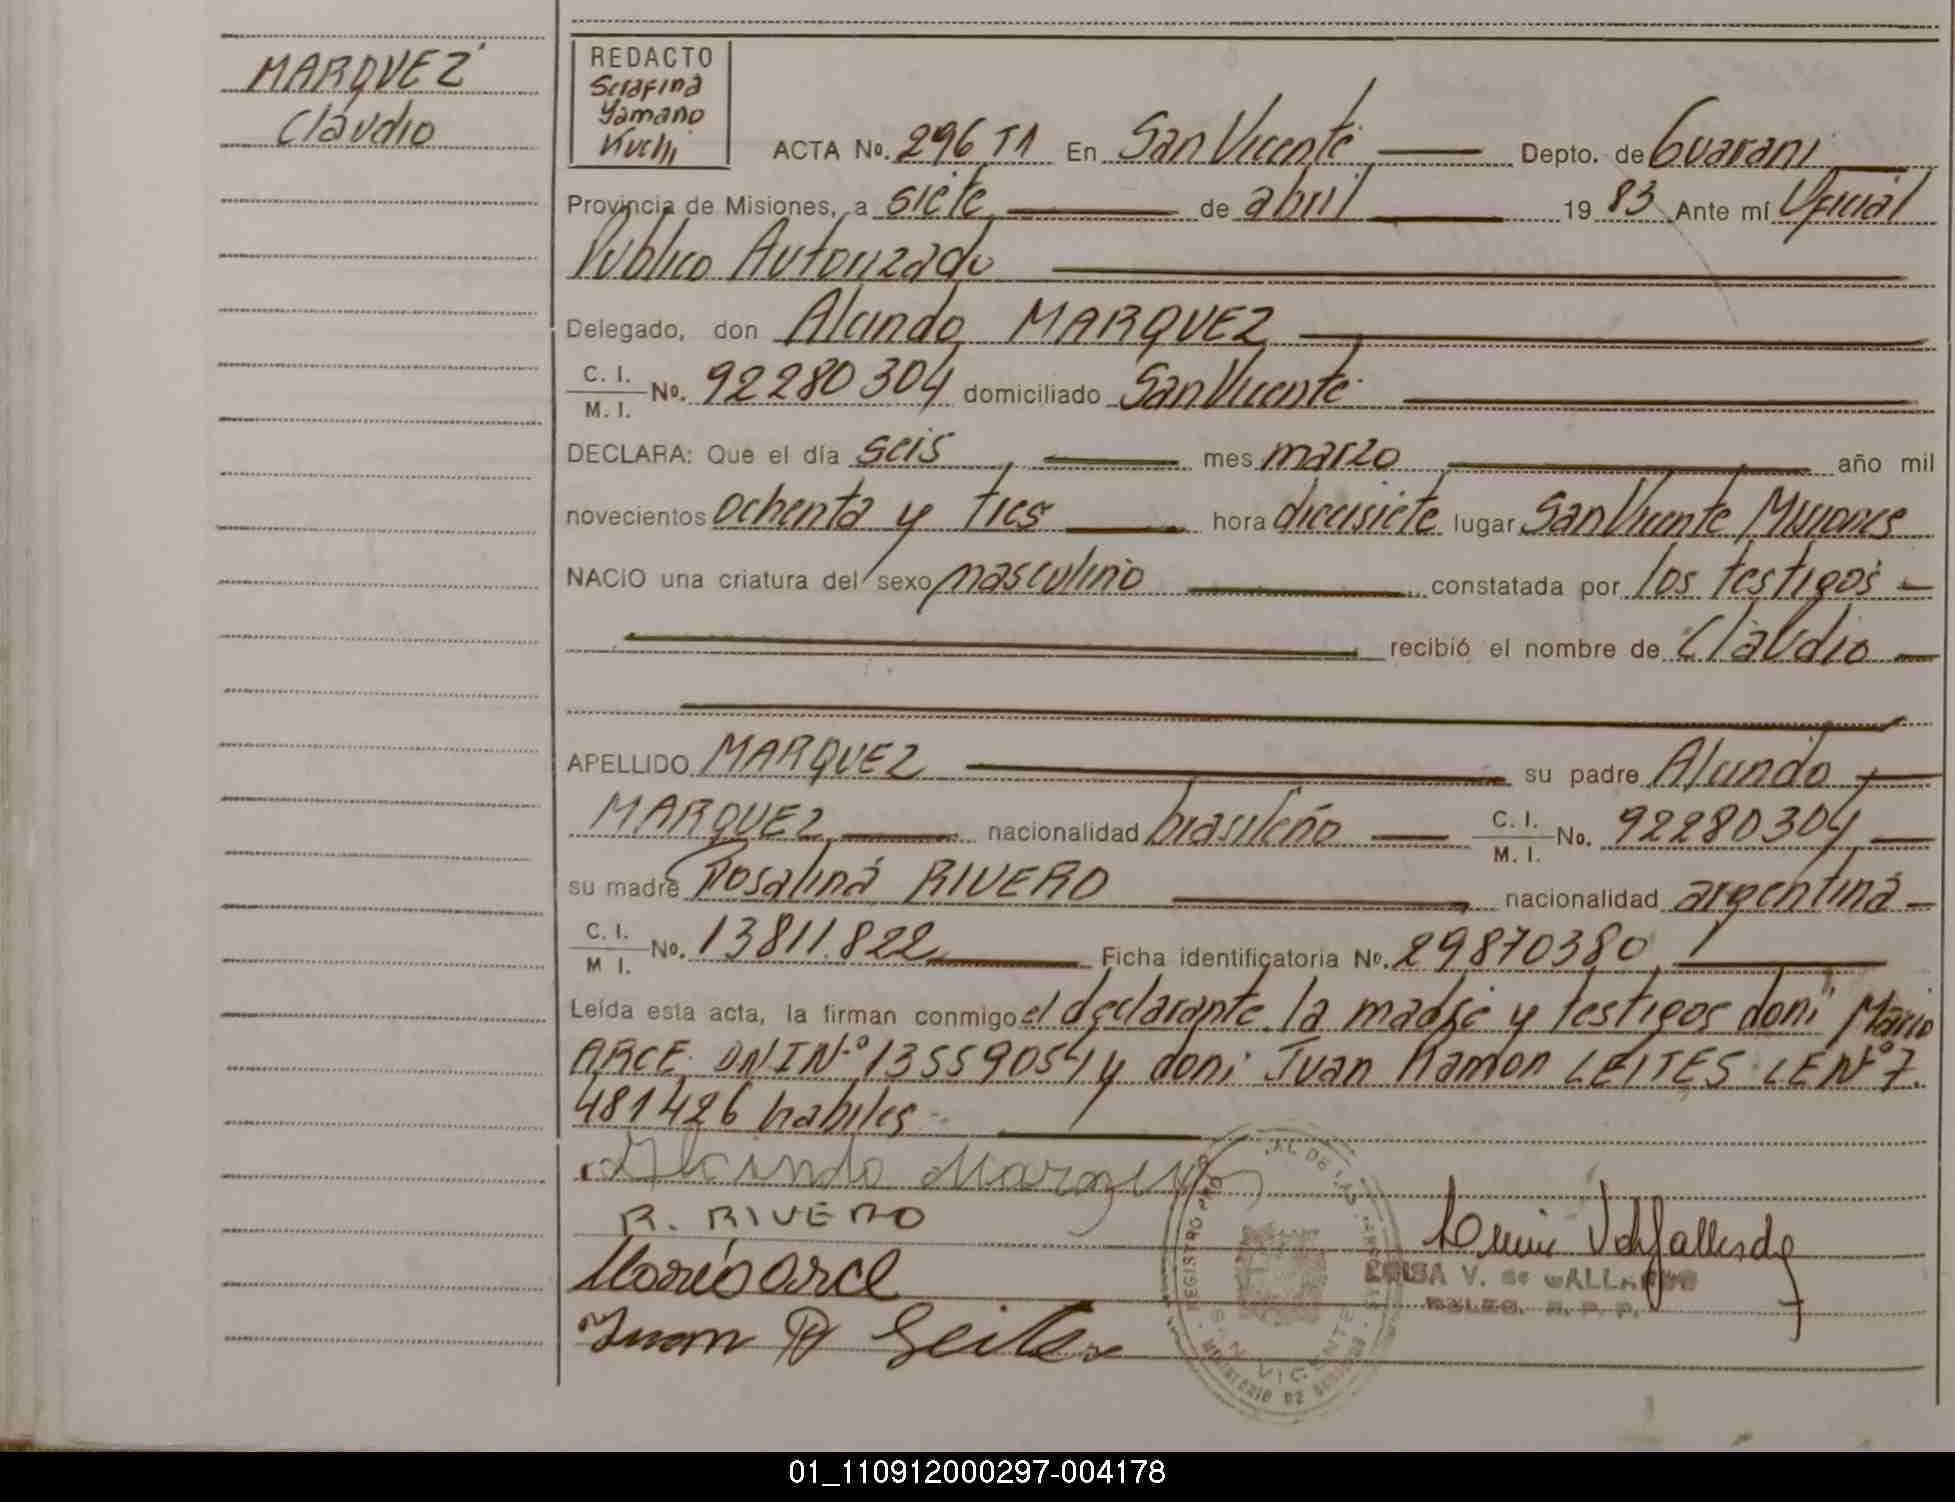 MARQUEZ
Claudio
REDACTO
Serafina
Yamano
ACTA No. 296 T1 En San Vicente Depto. de Guarani
Provincia de Misiones, a siete de abril 19 83 Ante mí Oficial
Publico Autorizado
Delegado, don Alcindo MARQUEZ
C. I.
M. I. No. 92280304 domiciliado San Vicente
DECLARA: Que el día seis mes marzo año mil
novecientos ochenta y tres hora diecisiete lugar San Vicente Misiones
NACIO una criatura del sexo masculino constatada por los testigos
recibió el nombre de Claudio
APELLIDO MARQUEZ su padre Alcindo
MARQUEZ nacionalidad brasileño C. I. M. I. No. 92280304
su madre Rosalina RIVERO nacionalidad argentina
C. I. M I. No. 13811.822 Ficha identificatoria No. 29870380
Leída esta acta, la firman conmigo el declarante la madre y testigos don: Mario
ARCE DNI N.º 13559054 y don: Juan Ramon LEITES LE Nº 7.
481426 habiles
Alcindo Marquez
R. RIVERO
Mario Arce
Juan R Leites
LUISA V. de GALLARDO
DELEG. R. P. P.
SAN VICENTE